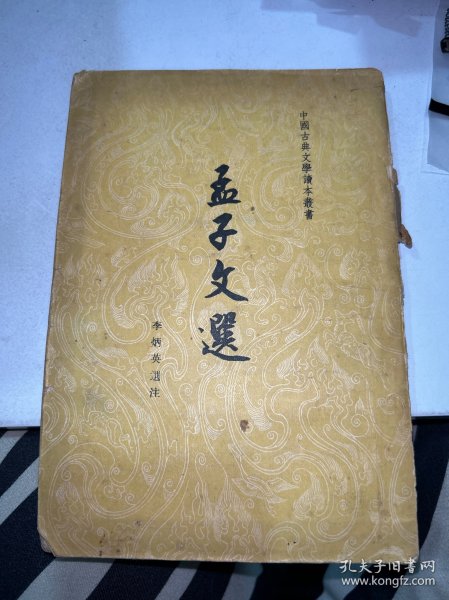 中國古典文學讀本叢書
孟子文選
李炳英選注
孔夫子旧书网
www.kongfz.com